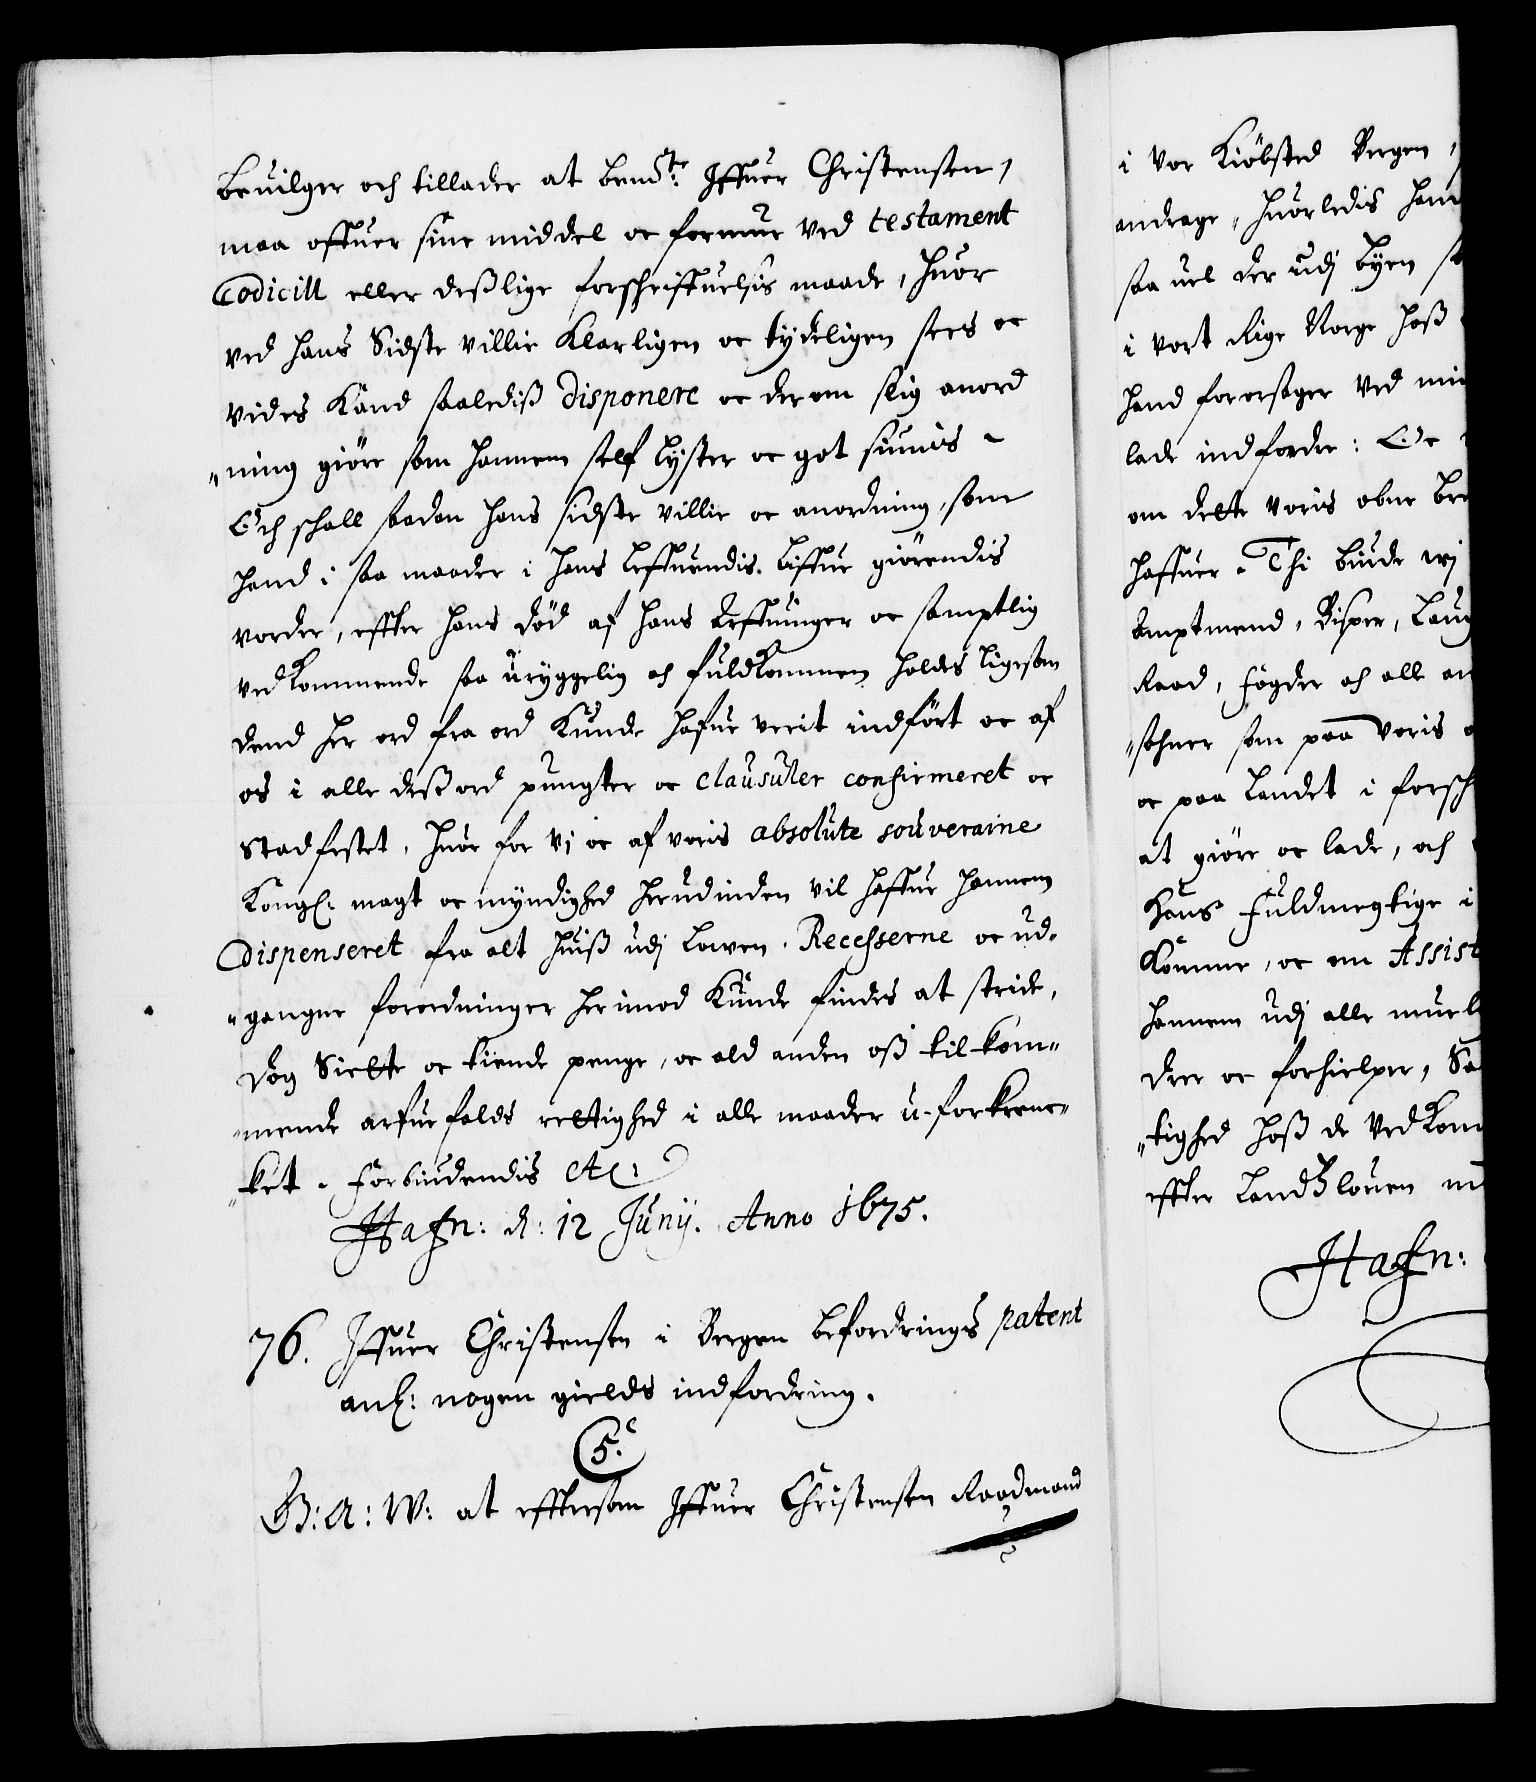 beuilger och tillader at bemte: Iffuer Christensen,
maa offuer sine middel oc formue ved testament
Codicill eller deßlige forschriffuelsis maade, huor
ved hans Sidste villie Klarligen oc tydeligen sees oc
vides Kand saalediß disponere oc derom slig anord
"ning giöre som hannem self lyster oc got siunis
Och schall saadan hans sidste villie oc anordning, som
hand i saa maader i hans leffuendis liffue giörendis
vorder, effter hans död af hans Arffuinger oc samptlig
vedkommende saa uryggelig och fuldkommen holdes ligesom
dend her ord fra ord Kunde hafue verit indfört oc af
os i alle deß ord pungter oc clausuler confirmeret oc
Stadfestet, huor for vj oc af voris absolute souveraine
Kongl: magt oc myndighed herudinden vil haffue hannem
dispenseret fra alt huiß udj Lowen, Recesserne oc ud-
"gangne forordninger herimod Kunde findes at stride,
dog Siette oc tiende penge, oc ald anden oß tilkom-
"mende arfuefalds rettighed i alle maader u-forkren-
"ket. Forbiudendis etc:
Hafn: d: 12 Junij. Anno 1675.
76. Iffuer Christensen i Bergen befordrings patent
anl: nogen gields indfordring.
5.
G: A: W: at effterson Iffuer Christensen Raadmand
i vor Kiöbsted Bergen,
andrage, huorledis hand
saa vel der udj byen
i vort Rige Norge hoß
hand foraarsager ved
lade indfordre: Oc
om dette voris obne
haffuer. Thi biude wj
Amptmend, Bisper,
Raad, fogder och alle
"sohner som paa voris
oc paa Landet i
at giöre oc lade, och
hans fuldmegtige i
Komme, oc em Assist
hannem udj alle
der oc forhielper,
"tighed hoß de
effter Landßlouen
Hafn: